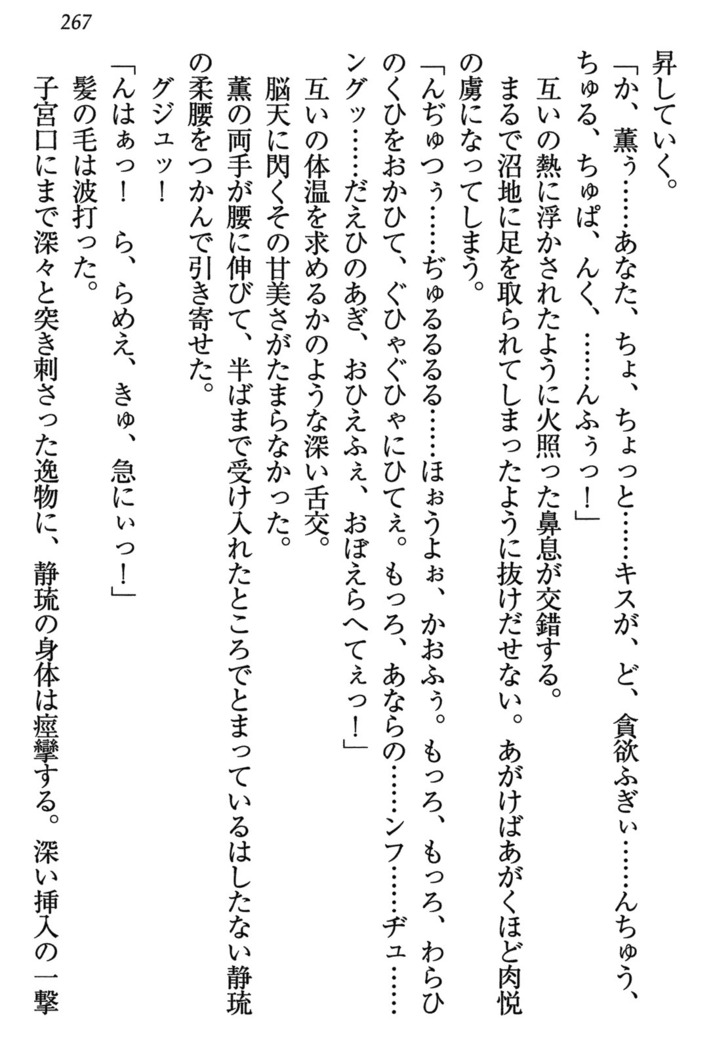 267
昇していく。
「か、薫ぅ……あなた、ちょ、ちょっと……キスが、ど、貪欲ふぎぃ……んちゅう、
ちゅる、ちゅぱ、んく、……んふぅっ！」
互いの熱に浮かされたように火照った鼻息が交錯する。
まるで沼地に足を取られてしまったように抜けだせない。あがけばあがくほど肉悦
の虜になってしまう。
「んぢゅつぅ……ぢゅるるるる……ほぉうよぉ、かおふぅ。もっろ、もっろ、わらひ
のくひをおかひて、ぐひゃぐひゃにひてぇ。もっろ、あならの……ンフ……ヂュ……
ングッ……だえひのあぎ、おひえふぇ、おぼえらへてぇっ！」
互いの体温を求めるかのような深い舌交。
脳天に閃くその甘美さがたまらなかった。
薫の両手が腰に伸びて、半ばまで受け入れたところでとまっているはしたない静琉
の柔腰をつかんで引き寄せた。
グジュッ！
「んはぁっ！　ら、らめえ、きゅ、急にぃっ！」
髪の毛は波打った。
子宮口にまで深々と突き刺さった逸物に、静琉の身体は痙攣する。深い挿入の一撃